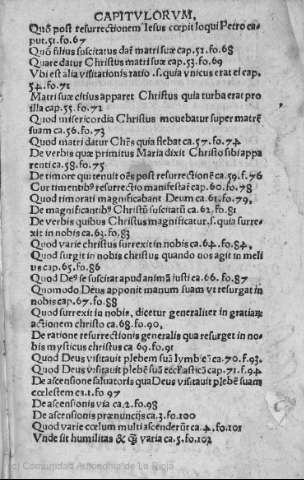 CAPITVLORVM,
Quõ post resurrectionem Iesus cœpit loqui Petro ca-
put.51.fo.67
Quõ filius suscitatus dat matri suæ cap.52.fo.68
Quare datur Christus matri suæ cap.53.fo.69
Vbi est alia visitationis ratio .s. quia vnicus erat ei cap,
54.fo.71
Matri suæ citius apparet Christus quia turba erat pro
illa cap.55.fo.72
Quod misericordia Christus mouebatur super matrẽ
suam ca.56.fo.73
Quod matri datur Chr̃s quia flebat ca.57.fo.74
De verbis quæ primitus Maria dixit Christo sibi appa
renti ca.58.fo.75
De timore qui tenuit oẽs post resurrectionẽ ca.59.f.76
Cur timentibꝰ resurrectio manifestat̃ cap.60.fo.78
Quod timorati magnificabant Deum ca.61.fo.79,
De magnificantibꝰ Christũ suscitatũ ca.62.fo.81
De verbis quibus Christus magnificatur.s.quia surre-
xit in nobis ca.63.fo.83
Quod varie christus surrexit in nobis ca.64.fo.84,
Quod surgit in nobis christus quando nos agit in meli
us cap.65.fo.86
Quod Deꝰ se suscitat apud animã iusti ca.66.fo.87
Quomodo Deus apponit manum suam vt resurgat in
nobis cap.67.fo.88
Quod surrexit in nobis, dicetur generaliter in gratiarũ
actionem christo ca.68.fo.90,
De ratione resurrectionis generalis qua resurget in no-
bis mysticus christus ca.69.fo.91
Quod Deus visitauit plebem suã lymbicã ca.70.f.93.
Quod Deus visitauit plebẽ suam ecclesiasticã cap.71.f.94
De ascensione saluatoris qua Deus visitauit plebẽ suam
cœlestem ca.1.fo.97
De ascensionis via ca.2.fo.98
De ascensionis prænuncijs ca.3.fo.100
Quod varie cœlum multi ascenderũt ca.4.fo.101
Vnde sit humilitas & q̃ varia ca.5.fo.102
(c) Comunidad Autónoma de La Rioja